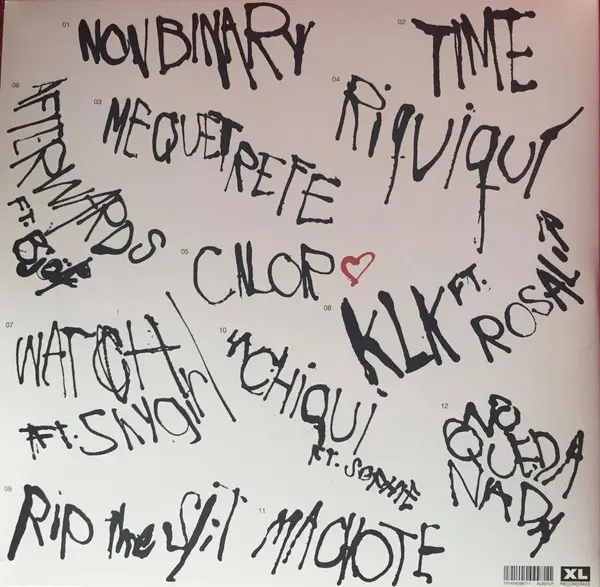 01
NONBINARY
02
TIME
03
MEQUETREFE
04
Riquiquí
05
CALOR
06
AFTERWARDS
FT. Björk
07
WATCH
FT. Shygirl
08
KLK FT.
ROSALíA
09
Rip the Slit
10
lA CHIQUI
FT. SOPHIE
11
MACHOTE
12
NO
QUEDA
NADA
XL
RECORDINGS